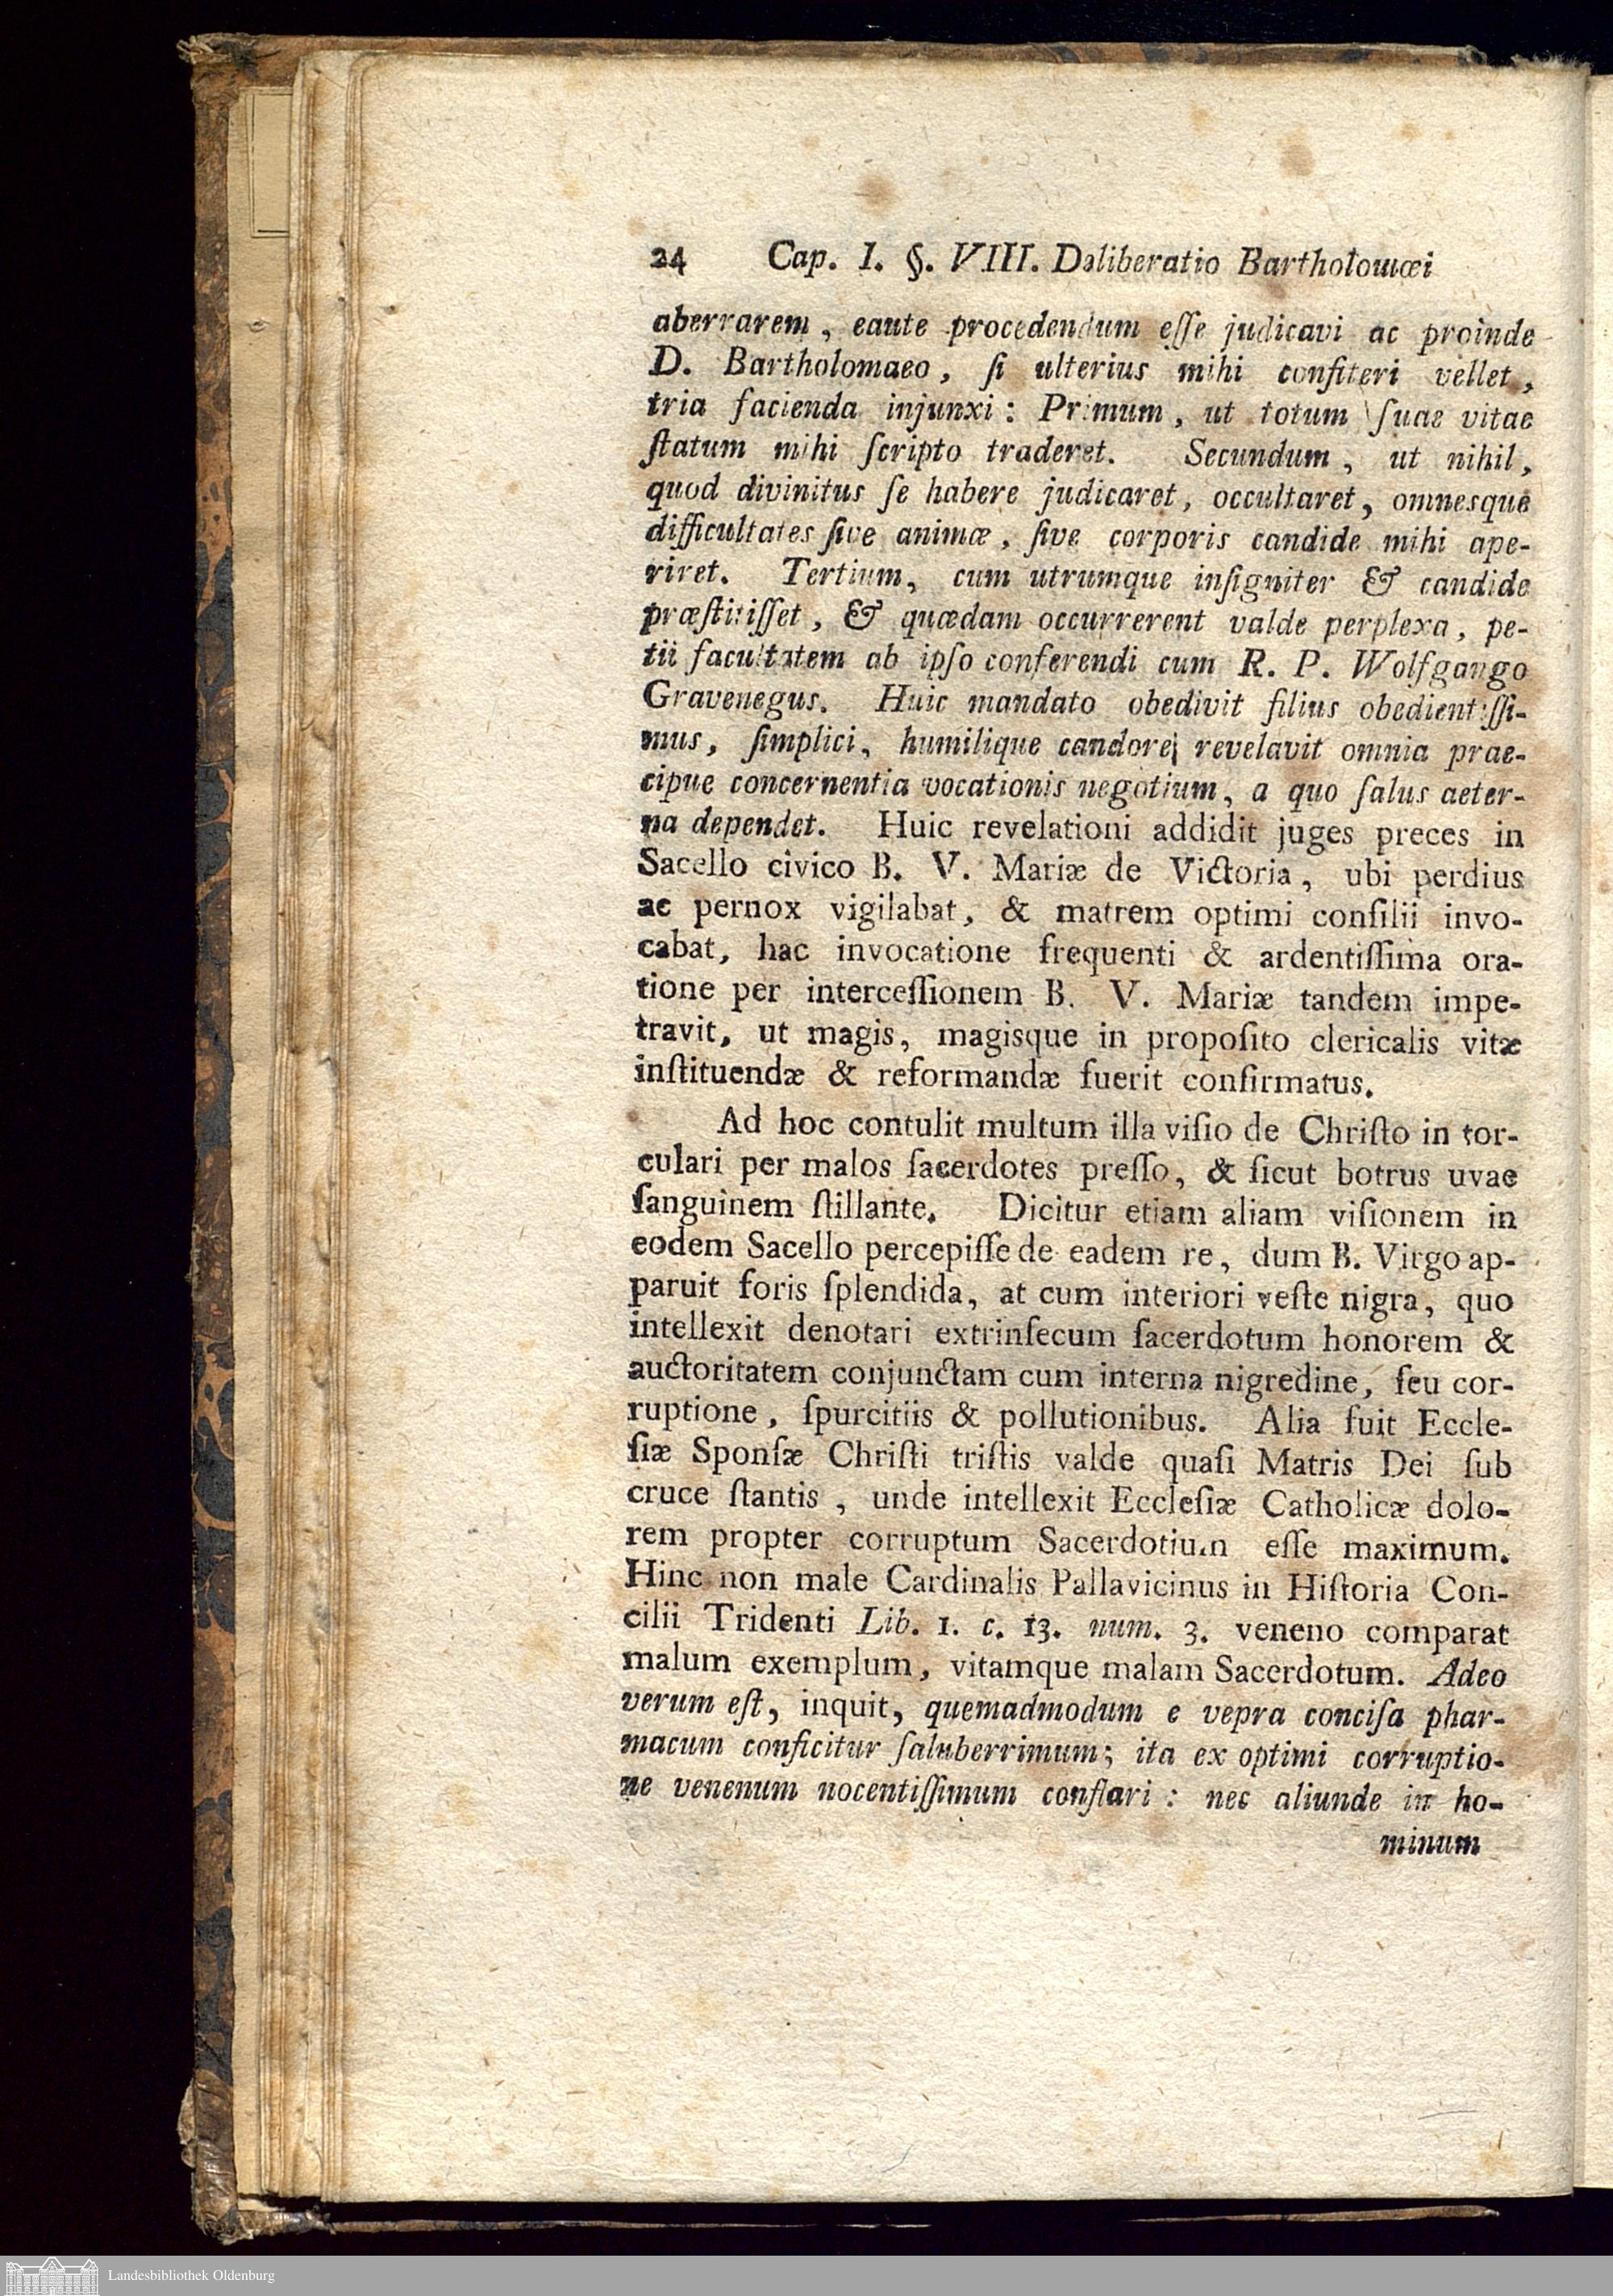 24 Cap. I. §. VIII. Deliberatio Bartholomæi
aberrarem, eaute procedendum eſſe judicavi ac proinde
D. Bartholomaeo, ſi ulterius mihi confiteri vellet,
tria facienda injunxi: Primum, ut totum ſuae vitae
ſtatum mihi ſcripto traderet. Secundum, ut nihil,
quod divinitus ſe habere judicaret, occultaret, omnesque
difficultates ſive animæ, ſive corporis candide mihi ape-
riret. Tertium, cum utrumque inſigniter & candide
præſtitiſſet, & quædam occurrerent valde perplexa, pe-
tii facultatem ab ipſo conferendi cum R. P. Wolfgango
Gravenegus. Huic mandato obedivit filius obedientiſſi-
mus, ſimplici, humilique candore revelavit omnia prae-
cipue concernentia vocationis negotium, a quo ſalus aeter-
na dependet. Huic revelationi addidit juges preces in
Sacello civico B. V. Mariæ de Victoria, ubi perdius
ac pernox vigilabat, & matrem optimi conſilii invo-
cabat, hac invocatione frequenti & ardentiſſima ora-
tione per interceſſionem B. V. Mariæ tandem impe-
travit, ut magis, magisque in propoſito clericalis vitæ
inſtituendæ & reformandæ fuerit confirmatus.
Ad hoc contulit multum illa viſio de Chriſto in tor-
culari per malos ſacerdotes preſſo, & ſicut botrus uvae
ſanguinem ſtillante. Dicitur etiam aliam viſionem in
eodem Sacello percepiſſe de eadem re, dum B. Virgo ap-
paruit foris ſplendida, at cum interiori veſte nigra, quo
intellexit denotari extrinſecum ſacerdotum honorem &
auctoritatem conjunctam cum interna nigredine, ſeu cor-
ruptione, ſpurcitiis & pollutionibus. Alia fuit Eccle-
ſiæ Sponſæ Chriſti triſtis valde quaſi Matris Dei ſub
cruce ſtantis, unde intellexit Eccleſiæ Catholicæ dolo-
rem propter corruptum Sacerdotium eſſe maximum.
Hinc non male Cardinalis Pallavicinus in Hiſtoria Con-
cilii Tridenti Lib. 1. c. 13. num. 3. veneno comparat
malum exemplum, vitamque malam Sacerdotum. Adeo
verum eſt, inquit, quemadmodum e vepra conciſa phar-
macum conficitur ſaluberrimum; ita ex optimi corruptio-
ne venenum nocentiſſimum conflari: nec aliunde in ho-
minum
Landesbibliothek Oldenburg